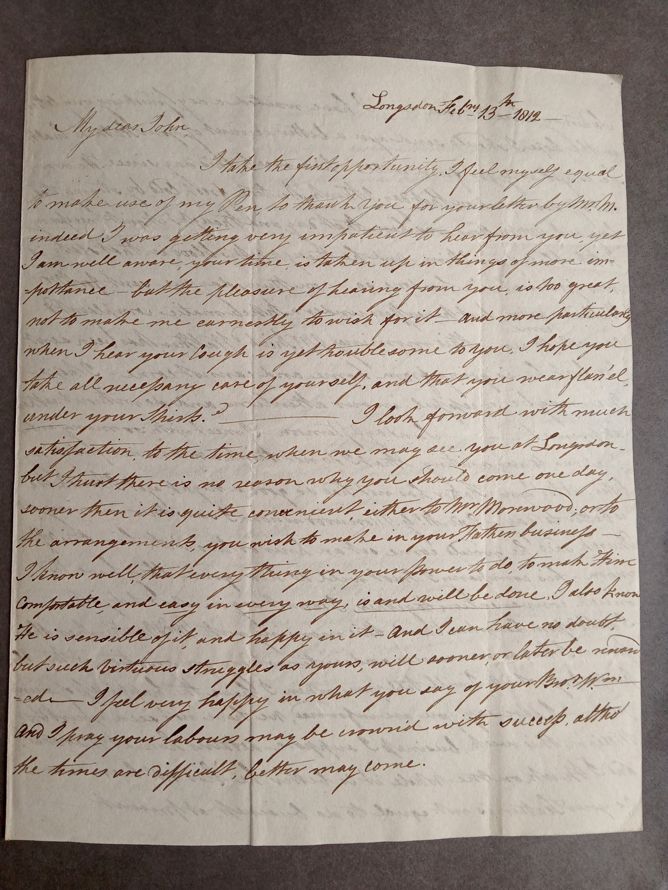 Longsdon Feb.ry 13th 1812 —
My dear John,
I take the first opportunity, I feel myself equal
to make use of my Pen to thank You for your letter by Mr. M.
indeed I was getting very impatient to hear from you, yet
I am well aware, your time is taken up in things of more im-
-portance — but the pleasure of hearing from you, is too great,
not to make me earnestly to wish for it — and more particularly
when I hear your Cough is yet troublesome to you, I hope you
take all necessary care of yourself, and that you wear flan'el,
under your Shirt. ——— I look forward with much
satisfaction to the time, when we may see you at Longsdon —
but I trust there is no reason why you should come one day,
sooner then it is quite convenient either to Mr. Norwood, or to
the arrangements, you wish to make in your Fathers business —
I know well, that every thing in your power to do, to make Him
Comfortable, and easy in every way, is and will be done, I also know
He is sensible of it, and happy in it — And I can have no doubt
but such virtuous struggles as yours, will sooner, or later be reward
-ed — I feel very happy in what you say of your Bror. Wm —
And I pray your labours may be crownd with success, altho'
the times are difficult, better may come.